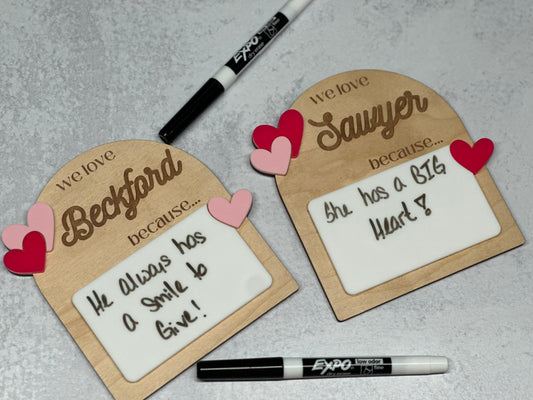 EXPO
we love
Beckford
because...
He Always has
a smile to
Give!
we love
Sawyer
because...
She has a BIG
Heart!
EXPO low odor
fine